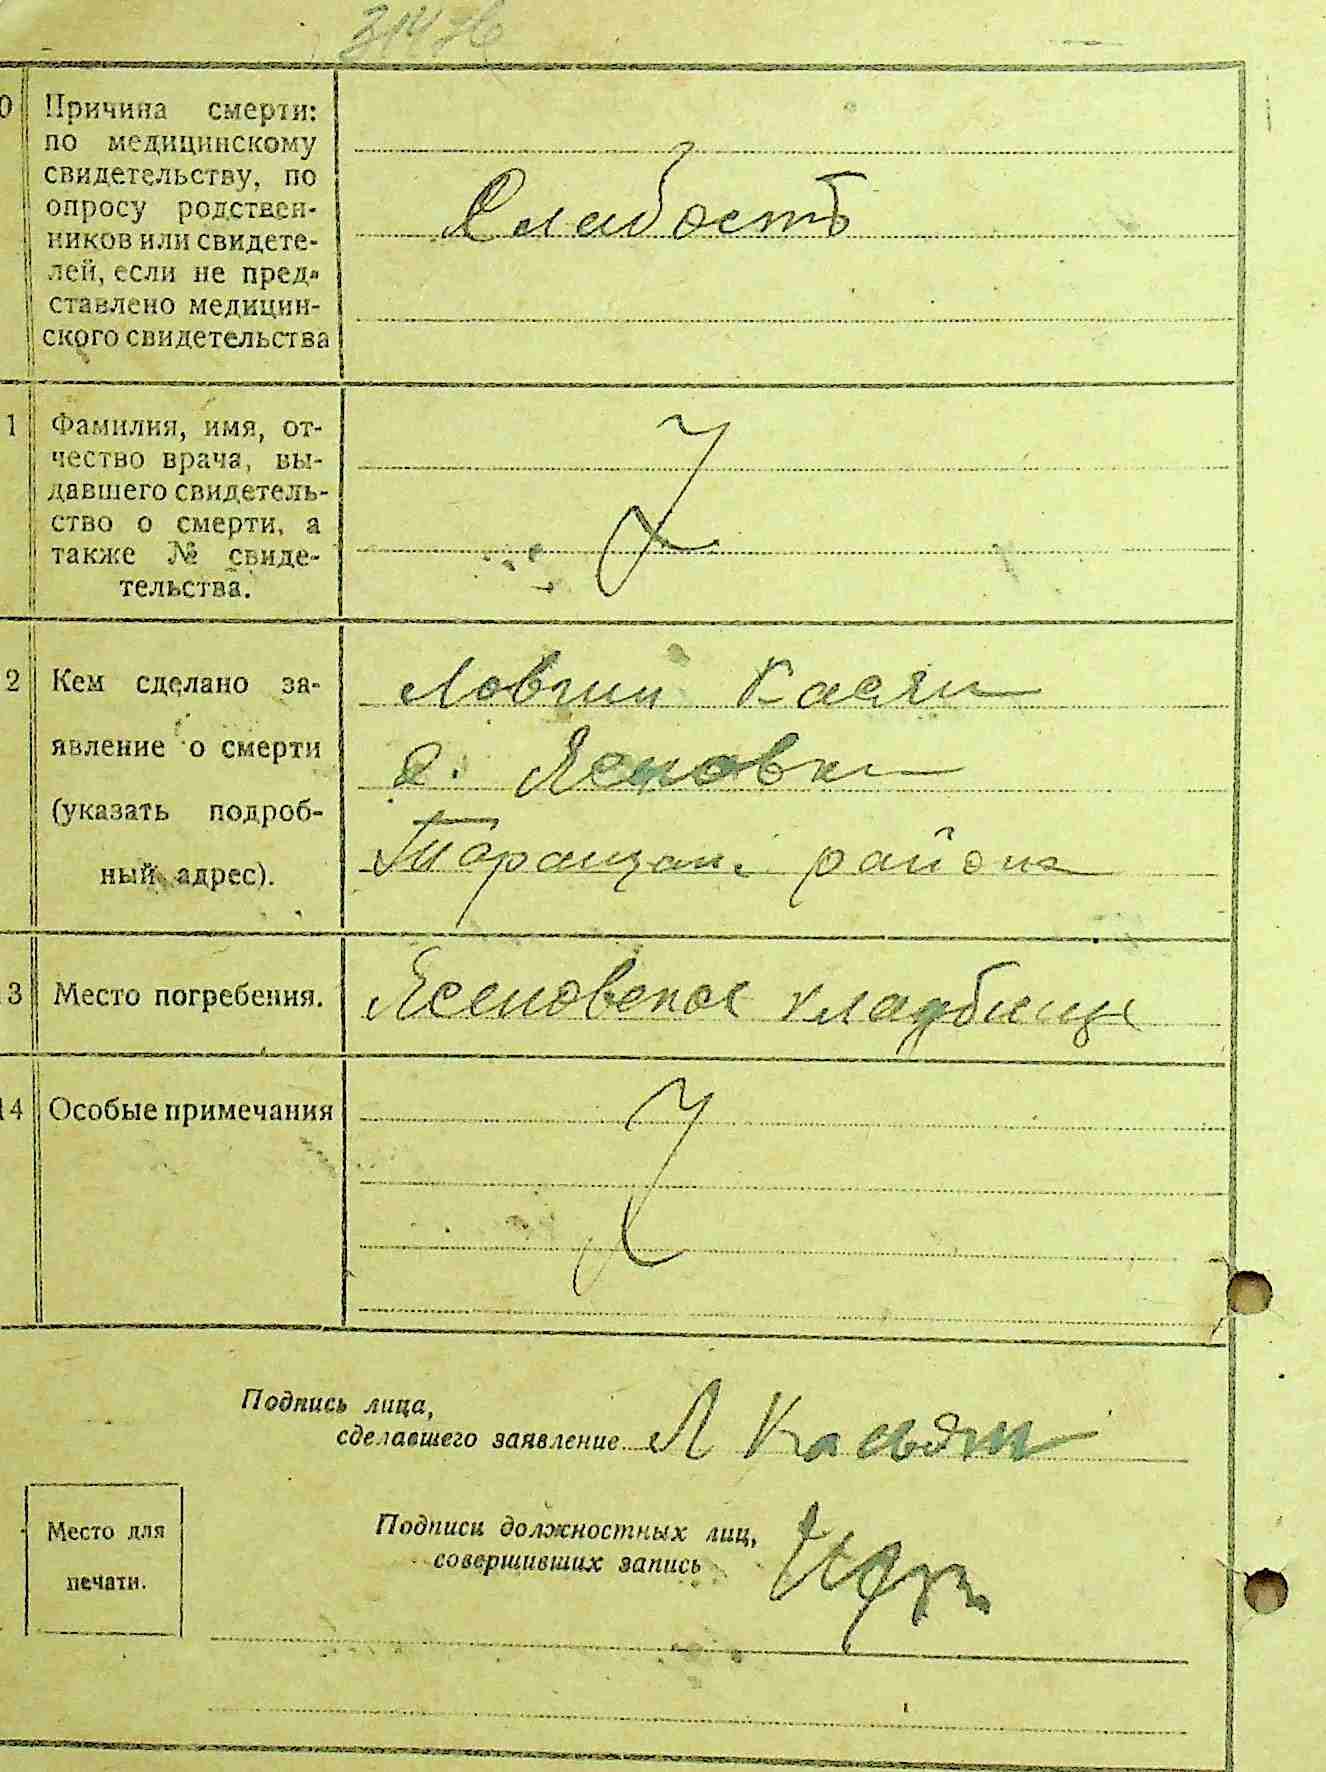 314
0 Причина смерти:
по медицинскому
свидетельству, по
опросу родствен-
ников или свидете-
лей, если не пред-
ставлено медицин-
ского свидетельства
Слабость
1 Фамилия, имя, от-
чество врача, вы-
давшего свидетель-
ство о смерти, а
также № свиде-
тельства.
2 Кем сделано за-
явление о смерти
(указать подроб-
ный адрес).
Касян
с. Ясеновка
Таращан. района
13 Место погребения.
Ясеновское кладбище
14 Особые примечания
Подпись лица,
сделавшего заявление Л Касьян
Место для
печати.
Подписи должностных лиц,
совершивших запись